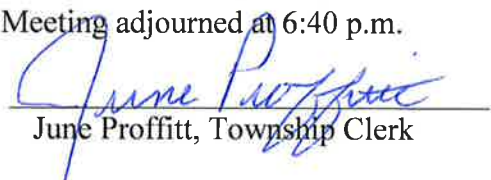 Meeting adjourned at 6:40 p.m.
June Proffitt
June Proffitt, Township Clerk